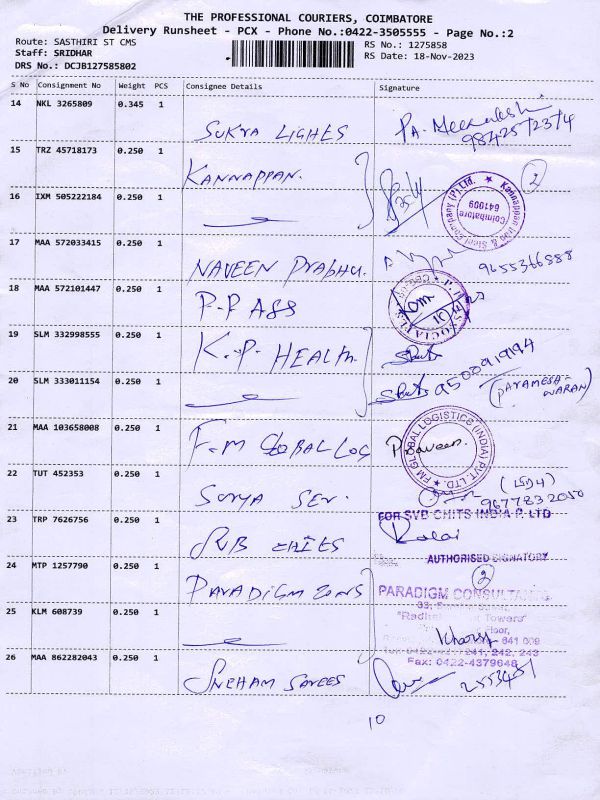 THE PROFESSIONAL COURIERS, COIMBATORE
Delivery Runsheet - PCX - Phone No.:0422-3505555 - Page No.:2
Route: SASTHIRI ST CMS
RS No.: 1275858
Staff: SRIDHAR
RS Date: 18-Nov-2023
DRS No.: DCJB127585802
S No Consignment No Weight PCS Consignee Details Signature
14 NKL 3265809 0.345 1
SURYA LIGHES PA. Meenakshi
98425/23/4
15 TRZ 45718173 0.250 1
KANNAPPAN. 2
16 IXM 505222184 0.250 1
Kannappan Iron & Steel Company (P) Ltd. Coimbatore 641009
17 MAA 572033415 0.250 1
NAVEEN Prabhu. 9655366588
18 MAA 572101447 0.250 1
P.P ASS
19 SLM 332998555 0.250 1
K.P. HEALTH
20 SLM 333011154 0.250 1
9500919194
(PARAMESH-WARAN)
21 MAA 103658008 0.250 1
F.M GLOBAL LOG Praveen.
FM GLOBAL LOGISTICS (INDIA) PVT. LTD.
22 TUT 452353 0.250 1
SURYA SER. 9677832050
23 TRP 7626756 0.250 1
FOR SVB CHITS INDIA P. LTD
SVB CHIES Kalai
AUTHORISED SIGNATORY
24 MTP 1257790 0.250 1
PARADIGM CONS 2
PARADIGM CONSULTANTS
25 KLM 608739 0.250 1
Towers"
Floor,
641 009
241, 242, 243
Fax: 0422-4379648
26 MAA 862282043 0.250 1
SNEHAM SAREES 2553451
10